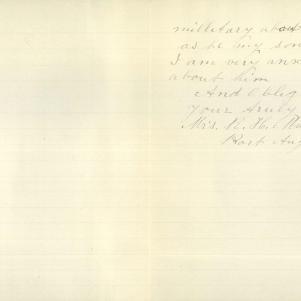 milletary about
as be my son
I am very anx
about him
And Oblig
your truly
Mrs. R. H.
Port Ang